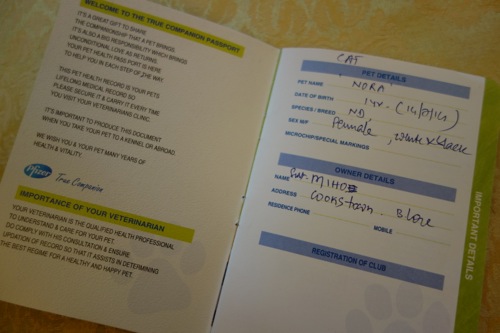 WELCOME TO THE TRUE COMPANION PASSPORT
IT'S A GREAT GIFT TO SHARE
THE COMPANIONSHIP THAT A PET BRINGS.
IT'S ALSO A BIG RESPONSIBILITY WHICH BRINGS
UNCONDITIONAL LOVE AS RETURNS.
YOUR PET HEALTH PASSPORT IS HERE
TO HELP YOU IN EACH STEP OF THE WAY.
THIS PET HEALTH RECORD IS YOUR PETS
LIFELONG MEDICAL RECORD SO
PLEASE SECURE IT & CARRY IT EVERY TIME
YOU VISIT YOUR VETERINARIANS CLINIC.
IT'S IMPORTANT TO PRODUCE THIS DOCUMENT
WHEN YOU TAKE YOUR PET TO A KENNEL OR ABROAD.
WE WISH YOU & YOUR PET MANY YEARS OF
HEALTH & VITALITY.
Pfizer True Companion
IMPORTANCE OF YOUR VETERINARIAN
YOUR VETERINARIAN IS THE QUALIFIED HEALTH PROFESSIONAL
TO UNDERSTAND & CARE FOR YOUR PET.
DO COMPLY WITH HIS CONSULTATION & ENSURE
UPDATION OF RECORD SO THAT IT ASSISTS IN DETERMINING
THE BEST REGIME FOR A HEALTHY AND HAPPY PET.
CAT
PET DETAILS
PET NAME "NORA"
DATE OF BIRTH
SPECIES / BREED ND
SEX M/F Female, white & Black
MICROCHIP/SPECIAL MARKINGS
OWNER DETAILS
NAME
ADDRESS Cookstown. B'lore
RESIDENCE PHONE MOBILE
REGISTRATION OF CLUB
IMPORTANT DETAILS